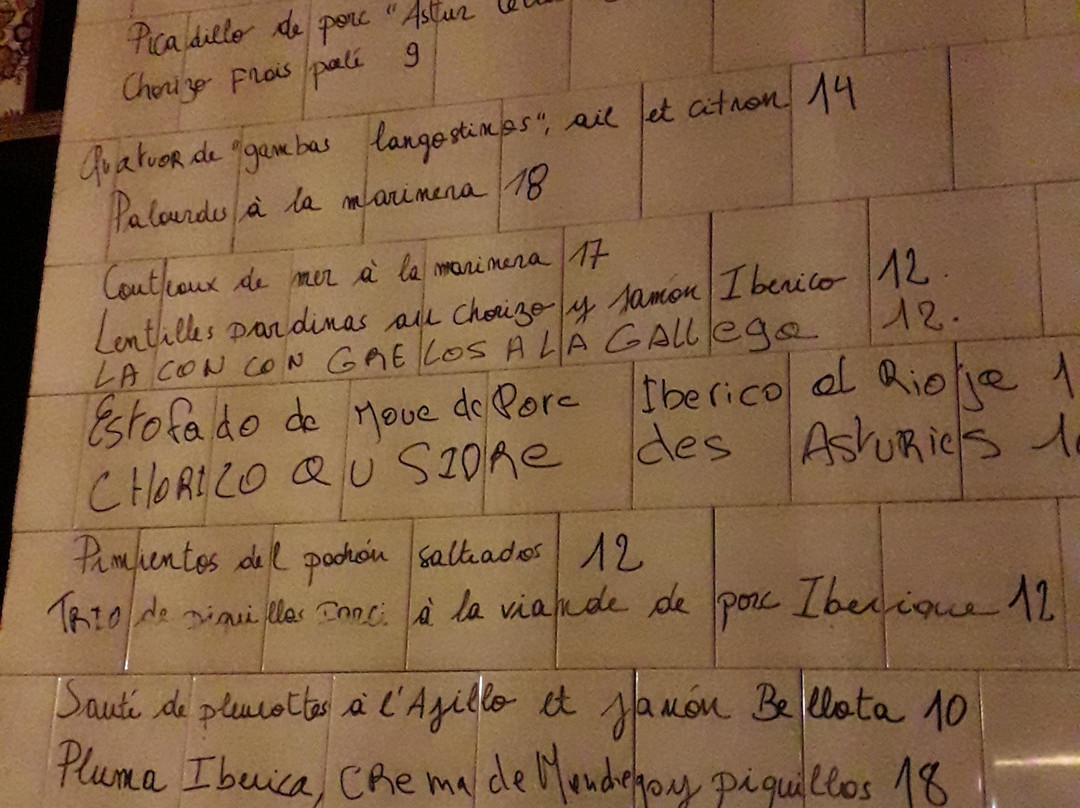 Picadillo de porc "Astur
Chorizo Frais palé 9
Quatuor de "gambas langostinos", ail et citron 14
Palourdes à la marinera 18
Couteaux de mer à la marinera 17
Lentilles pardinas au chorizo y Jamón Iberico 12.
LACON CON GRELOS A LA GALLega 12.
Estofado de Joue de Porc Iberico al Rioja 1
CHORIZO AU SIDRe des ASTURIES 1
Pimientos del padrón salteados 12
TRIO de piquillos à la viande de porc Iberique 12
Sauté de pleurottes à l'Ajillo et Jamón Bellota 10
Pluma Iberica, CRema de y piquillos 18